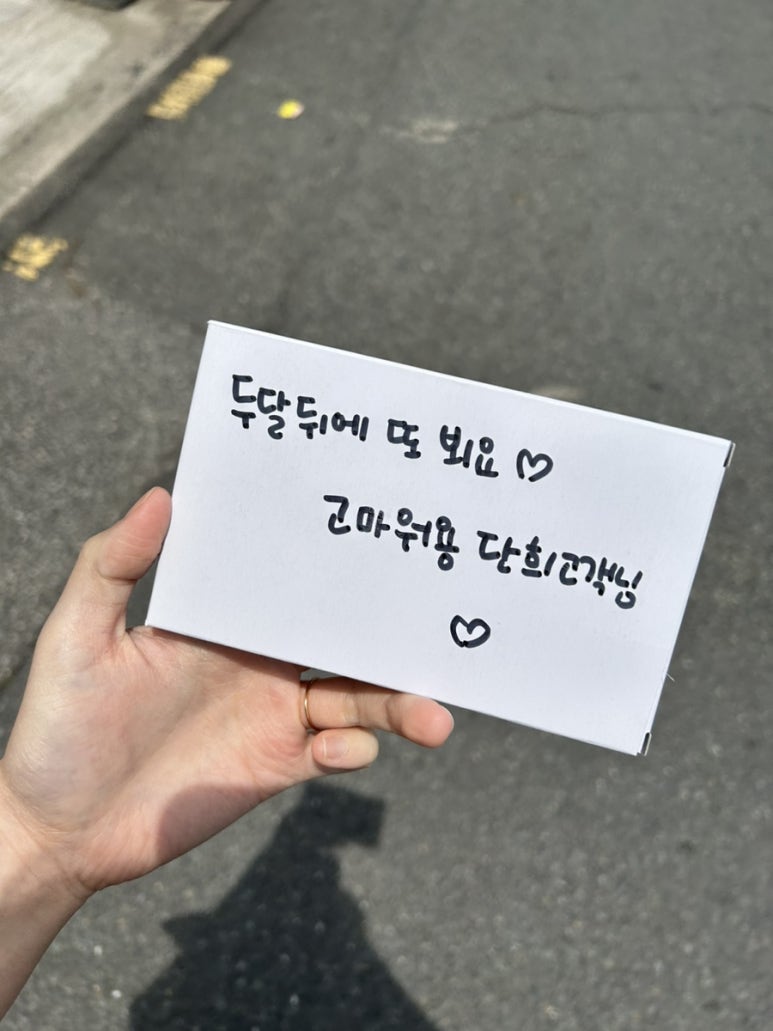 두달뒤에 또 뵈요 ♡
고마워용 단희고객님
♡